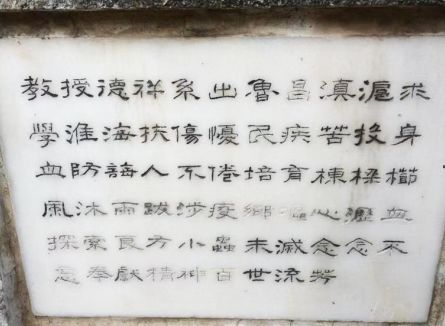 教授德祥系出魯昌滇滬求
學淮海扶傷憂民疾苦投身
血防誨人不倦培育棟樑櫛
風沐雨跋涉疫鄉 心瀝血
探索良方小蟲未滅念念不
忘奉獻精神百世流芳